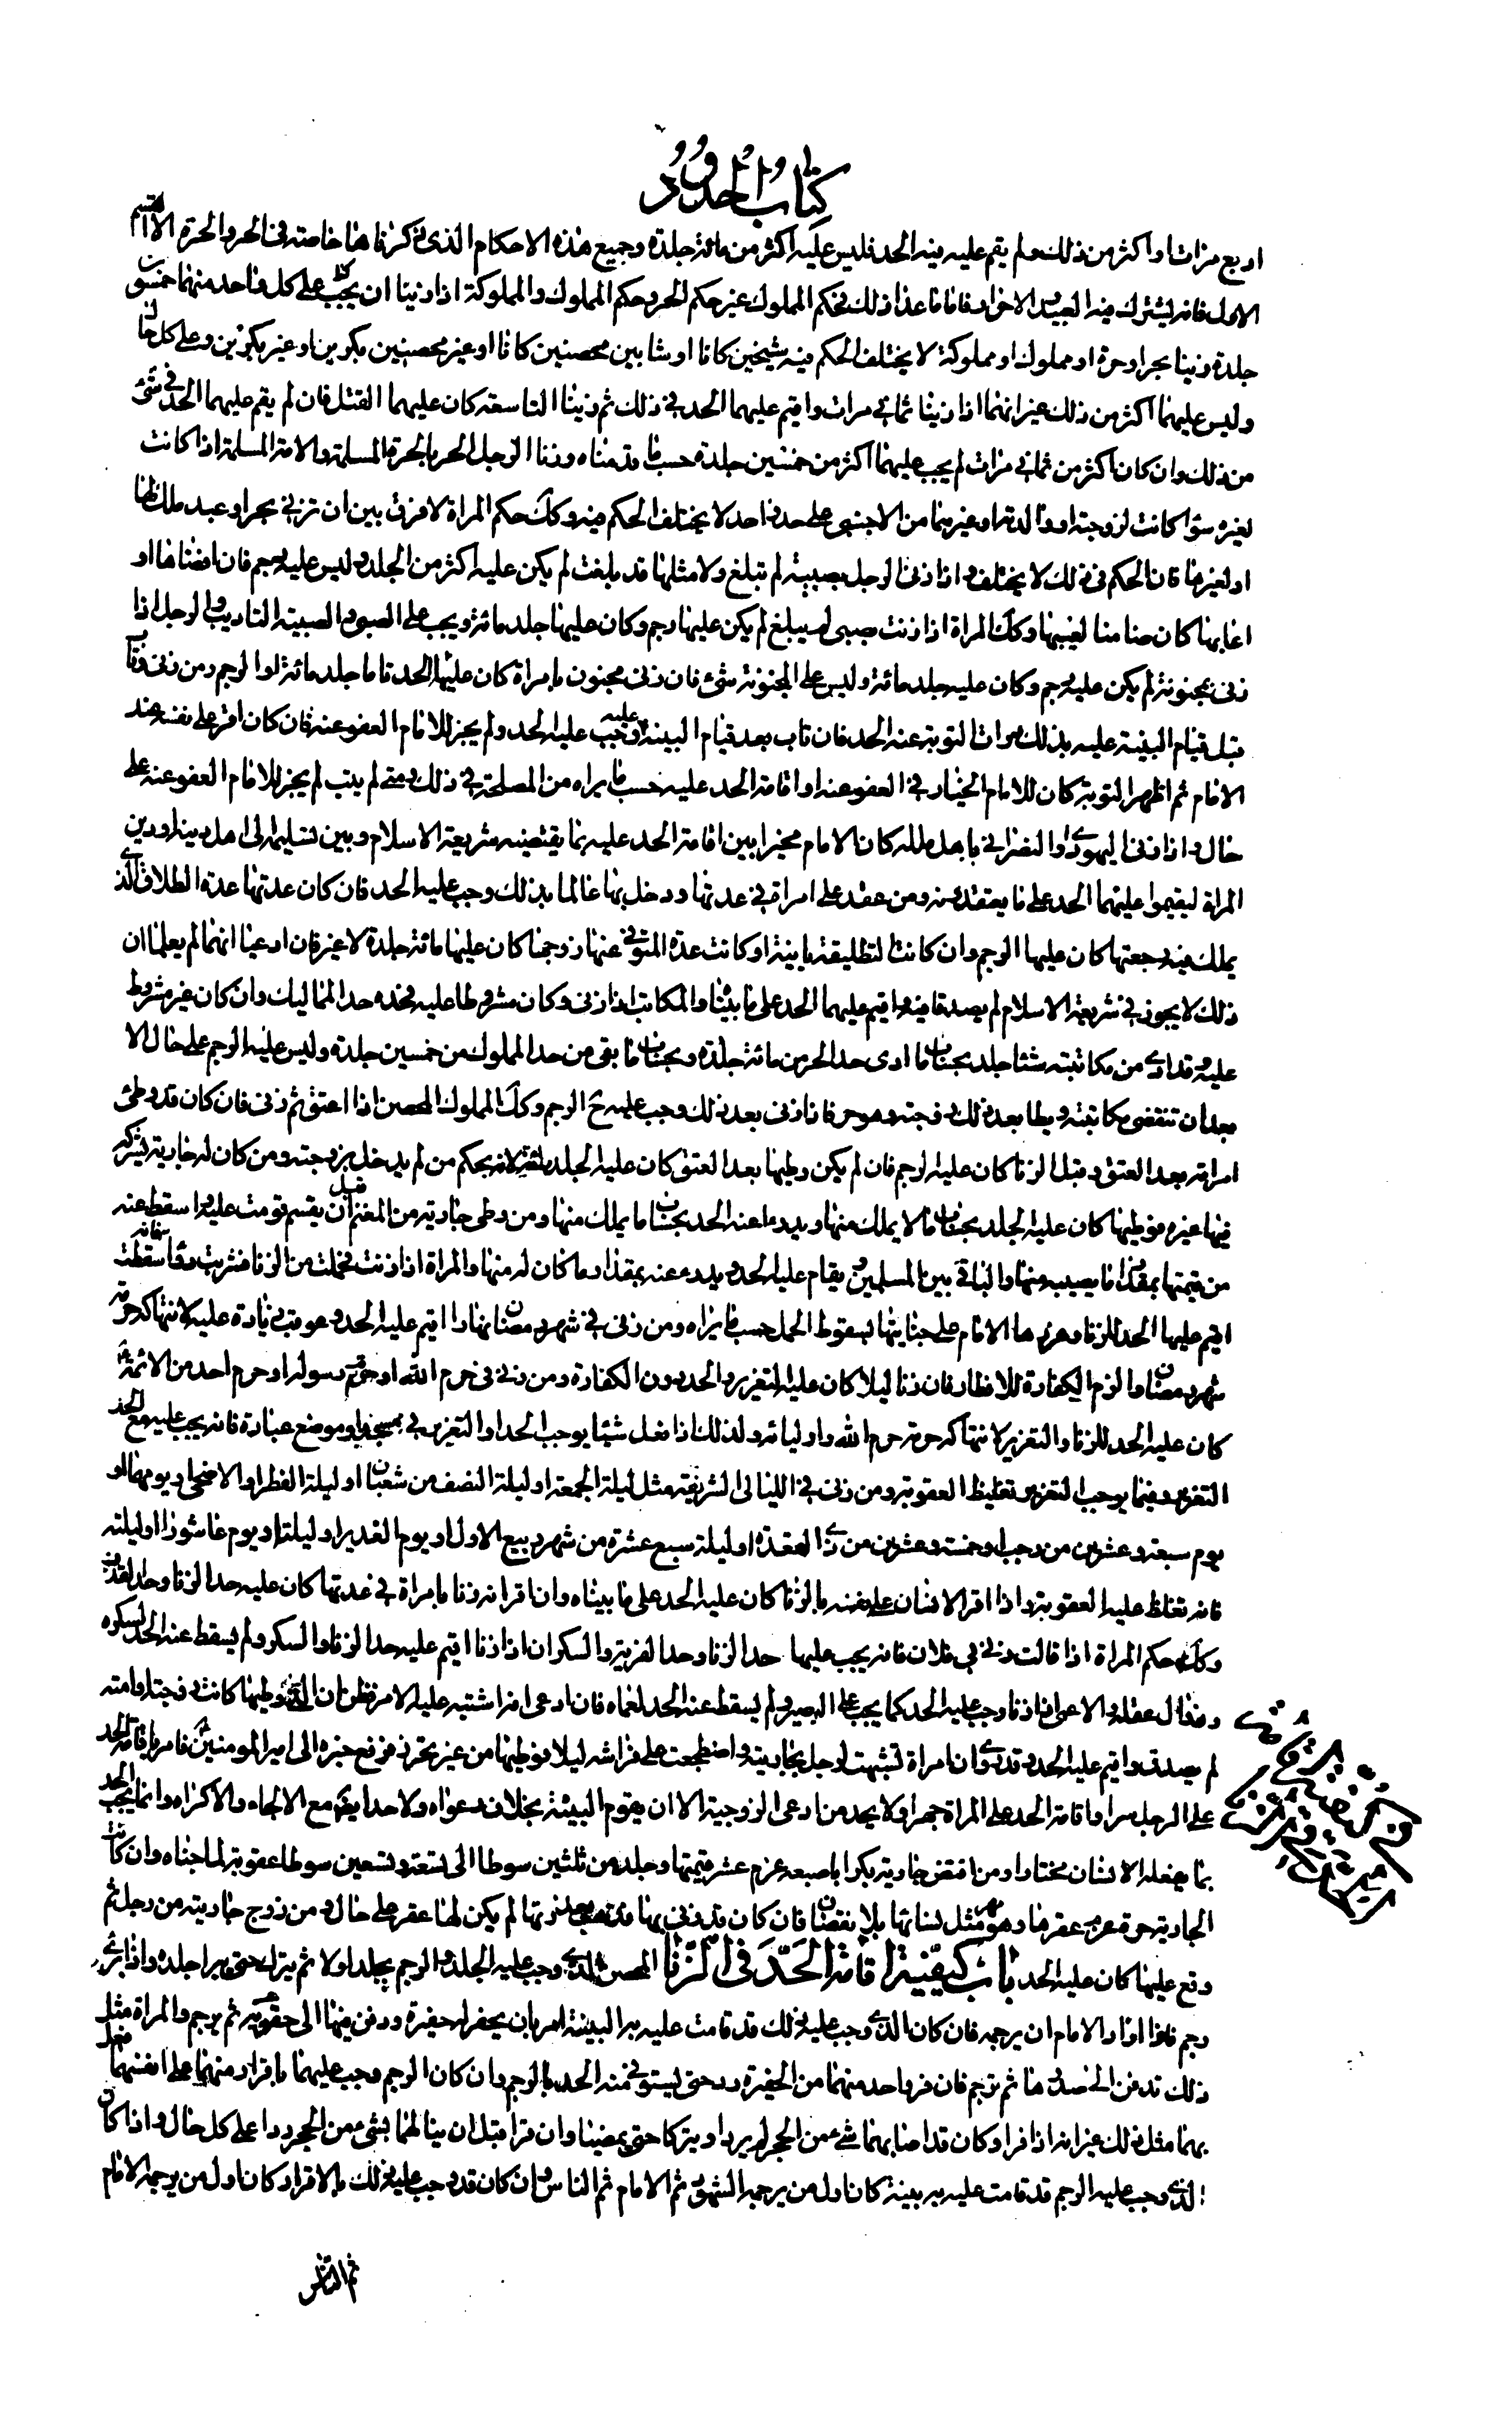 كتاب الحدود
اربع مرات او اكثر من ذلك ولم يقم عليه فيه الحد فليس عليه اكثر من مائة جلدة وجميع هذه الاحكام الذي ذكرناها خاصته في الحر والحرة الا القسم
الاول فانه يشترك فيه العبيد الاحرار فاما ما عدا ذلك فحكم المملوك غير حكم الحر وحكم المملوك والمملوكة اذا زنيا ان يجب على كل واحد منهما خمسون
جلدة زنيا بحر او حرة او مملوك او مملوكة لا يختلف الحكم فيه شيخين كانا او شابين محصنين كانا او غير محصنين بكرين او غير بكرين وعلى كل حال
وليس عليهما اكثر من ذلك غير انهما اذا زنيا ثماني مرات واقيم عليهما الحد في ذلك ثم زنيا التاسعة كان عليهما القتل فان لم يقم عليهما الحد في شئ
من ذلك وان كان اكثر من ثماني مرات لم يجب عليهما اكثر من خمسين جلدة حسب ما قدمناه وزنا الرجل الحر بالحرة المسلمة والامة المسلمة اذا كانت
لغيره سوا كانت لزوجته او والدته او غيرهما من الاجنبي على حد واحد لا يختلف الحكم فيه وكك حكم المراة لا فرق بين ان تزني بحر او عبد ملك لها
او لغيرها فان الحكم في ذلك لا يختلف واذا زنى الرجل بصبية لم تبلغ ولا مثلها قد بلغت لم يكن عليه اكثر من الجلد وليس عليه رجم فان افضاها او
اعابها كان ضامنا لعيبها وكك المراة اذا زنت بصبي لم يبلغ لم يكن عليها رجم وكان عليها جلد مائة ويجب على الصبي والصبية التاديب والرجل اذا
زنى بمجنونة لم يكن عليه رجم وكان عليه جلد مائة وليس على المجنونة شئ فان زنى مجنون بامراة كان عليه الحد تاما جلد مائة او الرجم ومن زنى وتاب
قبل قيام البينة عليه بذلك درات التوبة عنه الحد فان تاب بعد قيام البينة عليه وجب عليه الحد ولم يجز للامام العفو عنه فان كان اقر على نفسه عند
الامام ثم اظهر التوبة كان للامام الخيار في العفو عنه او اقامة الحد عليه حسب ما يراه من المصلحة في ذلك ومتى لم يتب لم يجز للامام العفو عنه على
حال واذا زنى اليهودي او النصراني باهل ملته كان الامام مخيرا بين اقامة الحد عليه بما يقتضيه شريعة الاسلام وبين تسليمه الى اهل دينه او دين
المراة ليقيموا عليهما الحد على ما يعتقدونه ومن عقد على امراة في عدتها ودخل بها عالما بذلك وجب عليه الحد فان كان عدتها عدة الطلاق الذي
يملك فيه رجعتها كان عليها الرجم وان كانت التطليقة باينة او كانت عدة المتوفى عنها زوجها كان عليها مائة جلدة لا غير فان ادعيا انهما لم يعلما ان
ذلك لا يجوز في شريعة الاسلام لم يصدقا فيه واقيم عليهما الحد على ما بيناه والمكاتب اذا زنى وكان مشروطا عليه فحده حد المماليك وان كان غير مشروط
عليه وقد ادى من مكاتبته شيئا جلد بحساب ما ادى حد الحر من مائة جلدة وبحساب ما بقي من حد المملوك من خمسين جلدة وليس عليه الرجم على حال الا
بعد ان تنقضي مكاتبته ويطا بعد ذلك زوجته وهو حر فاذا زنى بعد ذلك وجب عليه ح الرجم وكك المملوك المحصن اذا اعتق ثم زنى فان كان قد وطئ
امراته بعد العتق وقبل الزنا كان عليه الرجم فان لم يكن وطيها بعد العتق كان عليه الجلد مائة لانه بحكم من لم يدخل بزوجته ومن كان له جارية يشركه
فيها غيره فوطيها كان عليه الجلد بحساب ما لا يملك منها ويدرء عنه الحد بحساب ما يملك منها ومن وطى جارية من المغنم قبل ان يقسم قومت عليه واسقط عنه
من قيمتها بمقدار ما يصيبه منها والباقي بين المسلمين ويقام عليه الحد ويدرء عنه بمقدار ما كان له منها والمراة اذا زنت فحملت من الزنا فشربت دواء فاسقطت
اقيم عليها الحد للزنا وعزرها الامام على جنايتها بسقوط الحمل حسب ما يراه ومن زنى في شهر رمضان نهارا اقيم عليه الحد وعوقب زيادة عليه لانتهاكه حرمة
شهر رمضان والزم الكفارة للافطار فان زنا ليلا كان عليه التعزير والحد دون الكفارة ومن زنى في حرم الله او حرم رسوله او حرم احد من الائمة
كان عليه الحد للزنا والتعزير لانتهاكه حرمة حرم الله واوليائه وكذلك اذا فعل شيئا يوجب الحد او التعزير في مسجد او موضع عبادة فانه يجب عليه مع الحد
التعزير وفيما يوجب التعزير تغليظ العقوبة ومن زنى في الليالي الشريفة مثل ليلة الجمعة او ليلة النصف من شعبان او ليلة الفطر او الاضحى او يومهما او
يوم سبعة وعشرين من رجب او خمسة وعشرين من ذي القعدة او ليلة سبع عشرة من شهر ربيع الاول او يوم الغدير او ليلته او يوم عاشورا او ليلته
فانه تغلظ عليه العقوبة واذا اقر الانسان على نفسه بالزنا كان عليه الحد على ما بيناه وان اقر انه زنا بامراة في عدتها كان عليه حد الزنا وحد القذف
وكك حكم المراة اذا قالت زنى بي فلان فانه يجب عليها حد الزنا وحد الفرية والسكران اذا زنا اقيم عليه حد الزنا والسكر ولم يسقط عنه الحد لسكره
وزوال عقله والاعمى اذا زنا وجب عليه الحد كما يجب على البصير ولم يسقط عنه الحد لعماه فان ادعى انه اشتبه عليه الامر فظن ان التي وطيها كانت زوجته او امته
لم يصدق واقيم عليه الحد وقد روي ان امراة تشبهت لرجل بجاريته واضطجعت على فراشه ليلا فوطيها من غير تحرز فرفع خبره الى امير المومنين فامر باقامة الحد
على الرجل سرا واقامة الحد على المراة جهرا ولا يحد من ادعى الزوجية الا ان يقوم البينة بخلاف دعواه ولا حد ايضا مع الالجاء والاكراه وانما يجب الحد
بما يفعله الانسان مختارا ومن افتض جارية بكرا باصبعه غرم عشر قيمتها وجلد من ثلثين سوطا الى تسعة وتسعين سوطا عقوبة لما جناه وان كانت
الجارية حرة غرم عقرها وهو مهر مثل نسائها بلا نقصان فان كان قد زنى بها فذهب بعذرتها لم يكن لها عقر على حال ومن زوج جاريته من رجل ثم
وقع عليها كان عليه الحد باب كيفية اقامة الحد في الزنا المحصن الذي وجب عليه الجلد والرجم يجلد اولا ثم يترك حتى يبرا جلده واذا برئ
رجم فاذا اراد الامام ان يرجمه فان كان الذي وجب عليه ذلك قد قامت عليه به البينة امر بان يحفر له حفيرة ودفن فيها الى حقويه ثم يرجم والمراة مثل
ذلك تدفن الى صدرها ثم ترجم فان فر واحد منهما من الحفيرة رد حتى يستوفى منه الحد بالرجم وان كان الرجم وجب عليهما باقرار منهما على انفسهما فعل
بهما مثل ذلك غير انه اذا فرا وكان قد اصابهما شئ من الحجر لم يردا ويتركا حتى يمضيا وان فرا قبل ان ينالهما بشئ من الحجر ردا على كل حال واذا كان
الذي وجب عليه الرجم قد قامت عليه به بينة كان اول من يرجمه الشهود ثم الامام ثم الناس وان كان قد وجب عليه ذلك بالاقرار كان اول من يرجمه الامام
ثم الناس